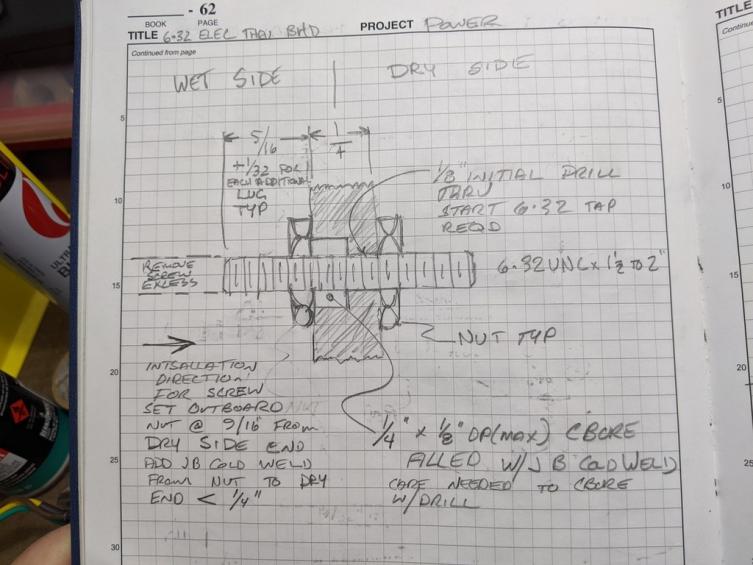 - 62
BOOK PAGE
TITLE 6-32 ELEC THRU BHD PROJECT POWER
Continued from page
WET SIDE DRY SIDE
5/16 1/4
+1/32 FOR
EACH ADDITIONAL
LUG
TYP
1/8" INITIAL DRILL
THRU
START 6-32 TAP
REQD
REMOVE
SCREW
EXCESS
6-32UNC x 1 1/2 TO 2"
NUT TYP
INTSALLATION
DIRECTION
FOR SCREW
SET OUTBOARD NUT
NUT @ 9/16" FROM
DRY SIDE END
ADD JB COLD WELD
FROM NUT TO DRY
END < 1/4"
1/4" x 1/8" DP(MAX) CBORE
FILLED W/J B COLD WELD
CARE NEEDED TO CBORE
W/DRILL
5
10
15
20
25
30
TITLE
Continu
5
10
15
20
25